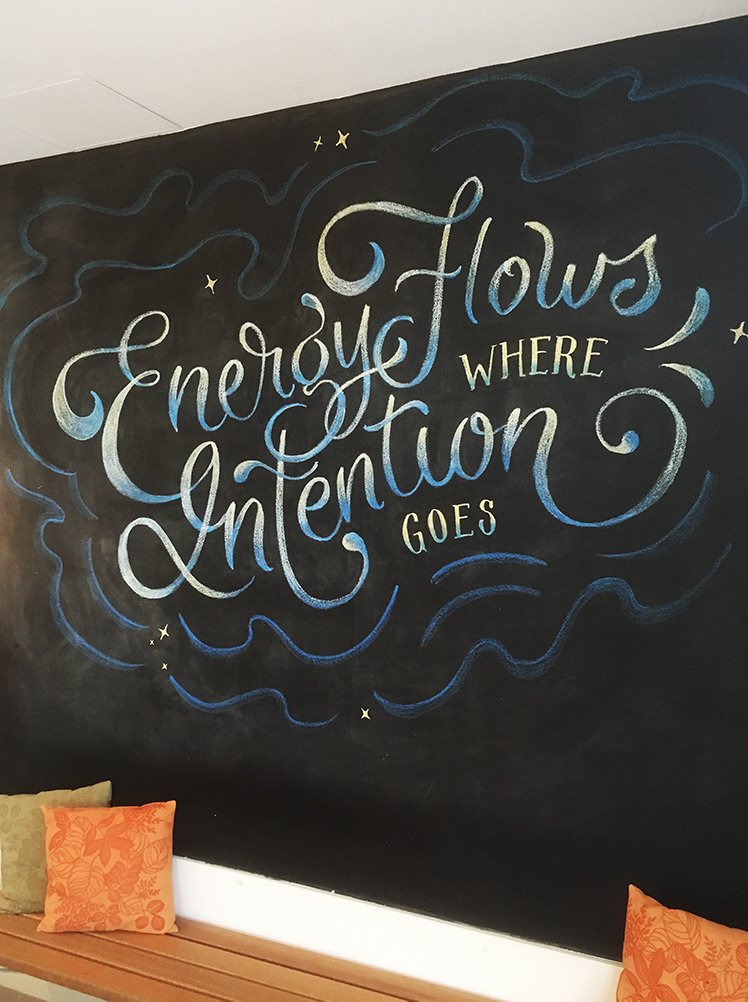 Energy Flows
WHERE
Intention
GOES